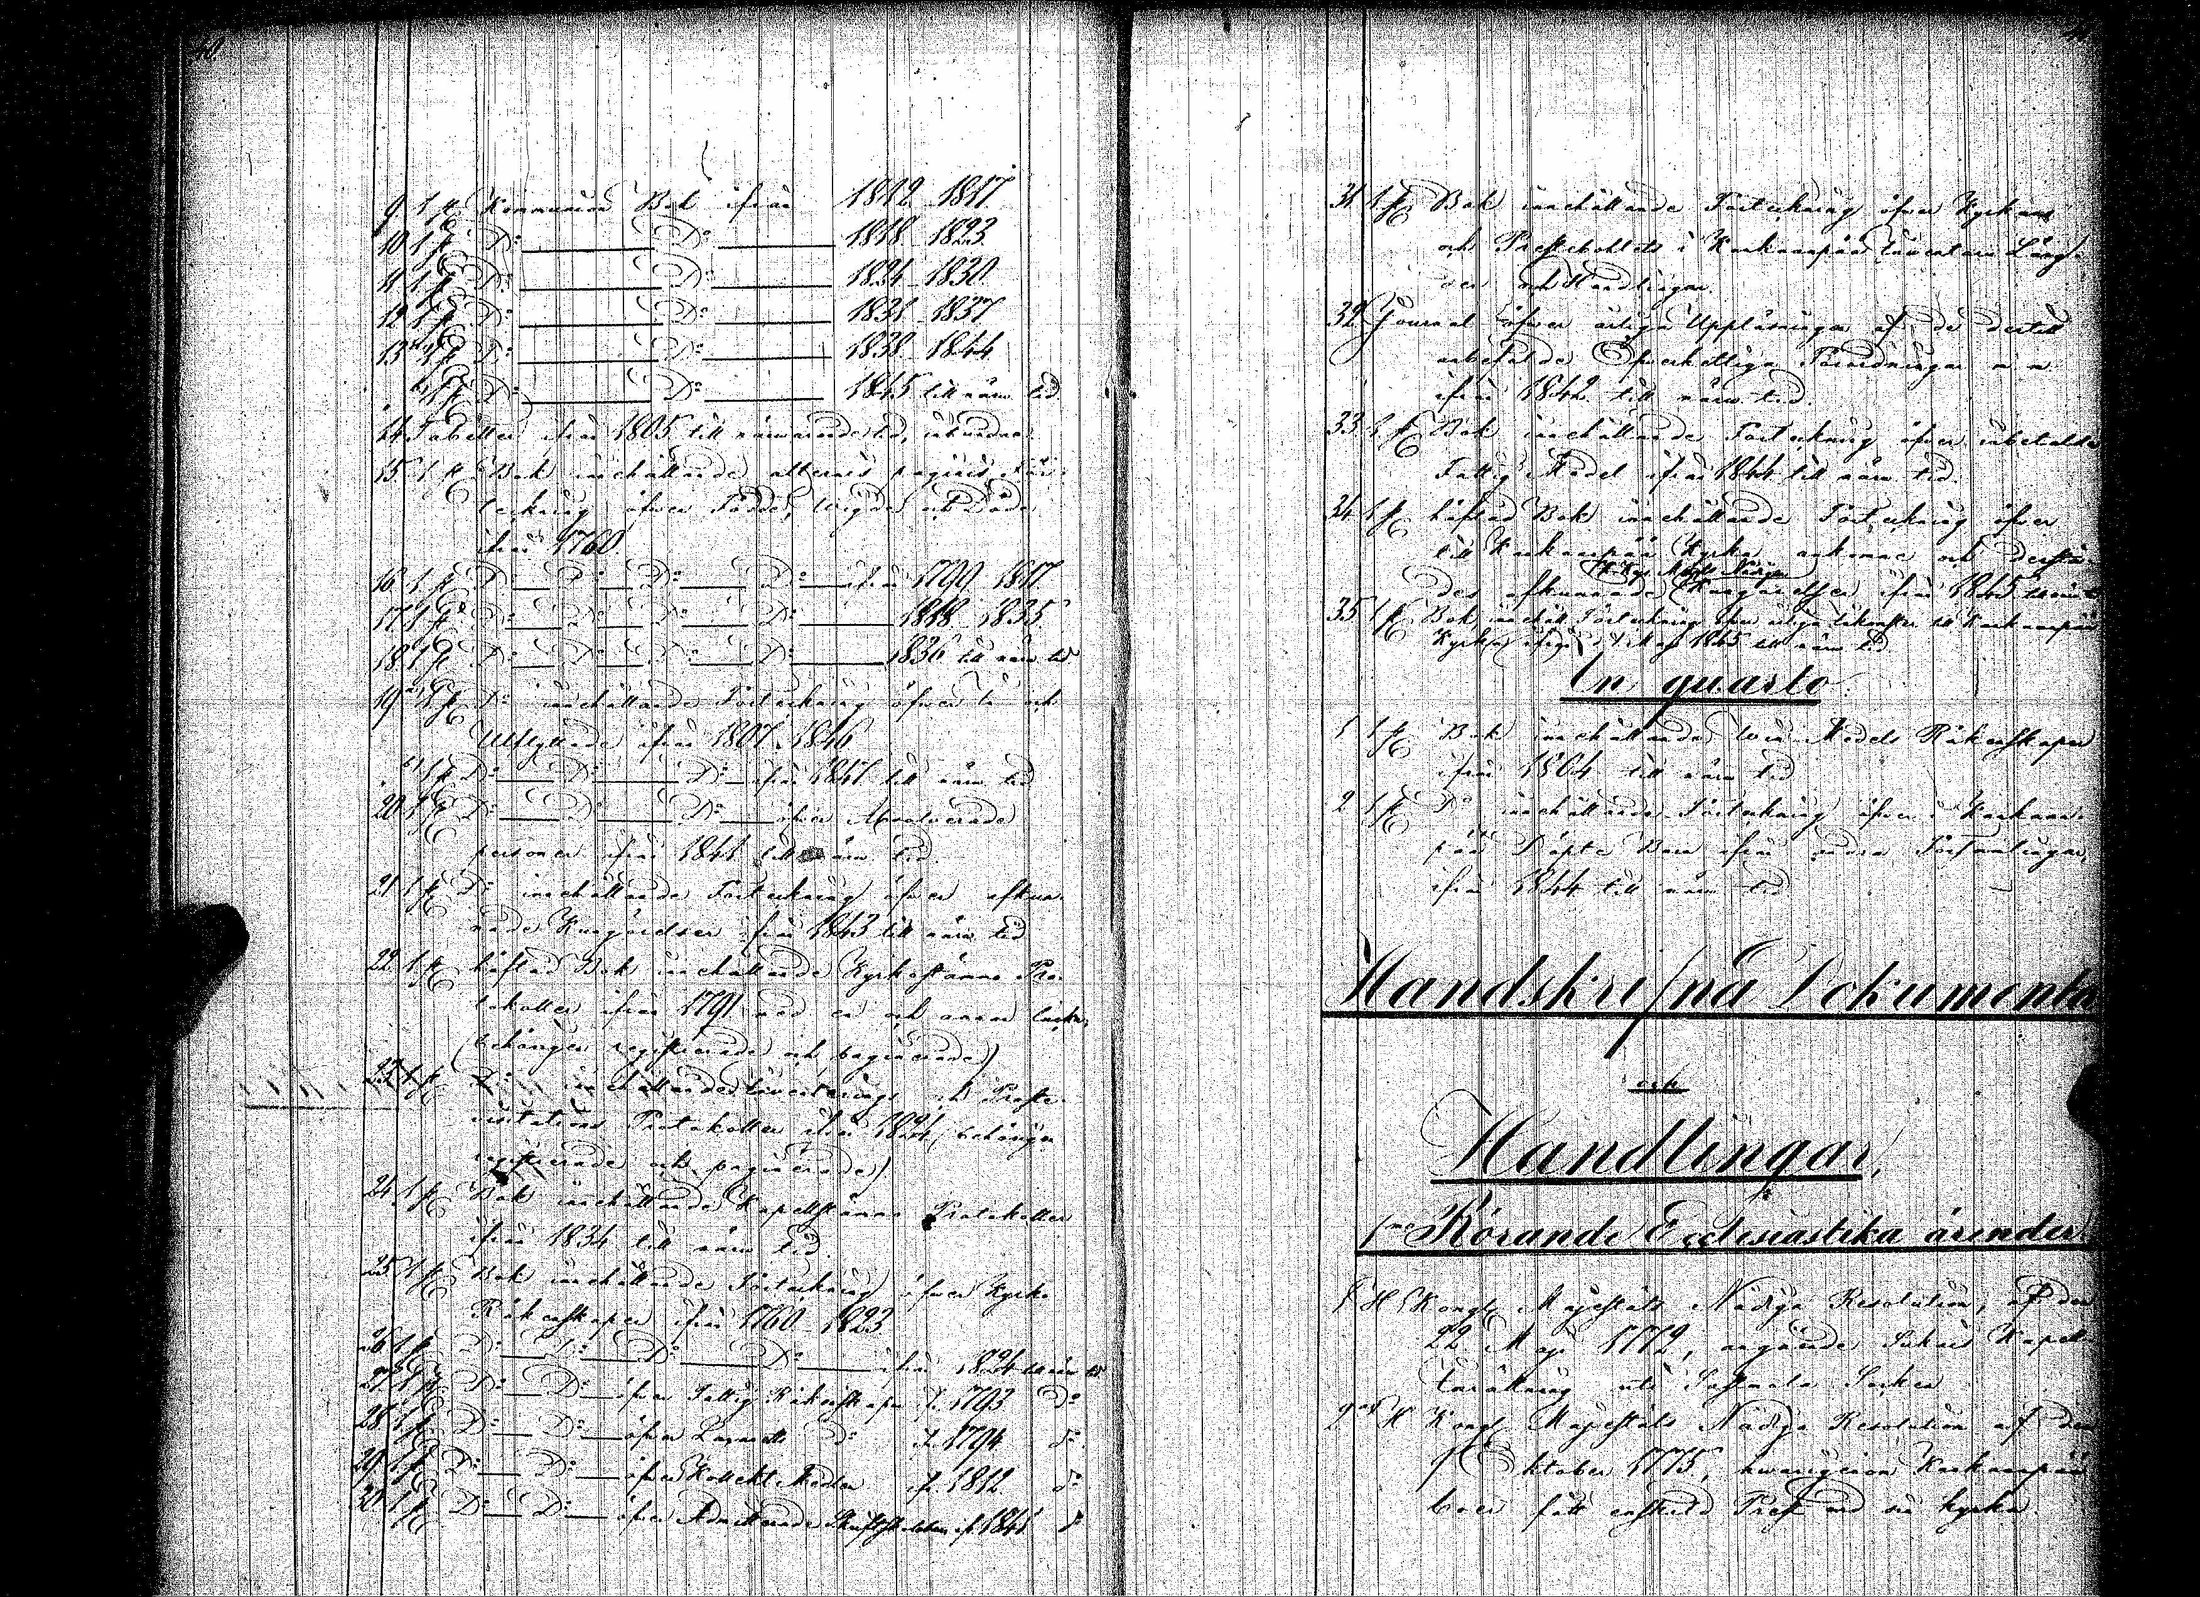 40.
9 1 st Kommunion Bok ifrån 1812–1817
10 1 st D:o D:o 1818–1823.
11 1 st D:o D:o 1824–1830.
12 1 st D:o D:o 1831–1837
13 1 st D:o D:o 1838–1844
1 st D:o D:o 1845 till närv. tid
14 Tabeller ifrån 1805 till närvarande tid, inbundna.
15 1 st Bok innehållande alternis paginis För-
teckning öfver Födde, Wigde och Döde
ifrån 1760.
16 1 st D:o D:o D:o D:o ifrån 1799–1817
17 1 st D:o D:o D:o D:o 1818–1835.
18 1 st D:o D:o D:o D:o 1836 till närv. tid
19 1 st D:o innehållande Förteckning öfver In och
Utflyttade ifrån 1807–1846
1 st D:o D:o D:o ifrån 1847 till närv. tid
20 1 st D:o D:o D:o öfver Absolverade
personer ifrån 1841 till närv. tid.
21 1 st D:o innehållande Förteckning öfver afkun-
nade Kungörelser ifrån 1843 till närv. tid
22 1 st häftad Bok innehållande Kyrkostämmo Pro-
tokoller ifrån 1791 med en och annan
(behörigen registrerade och paginerade)
23 1 st D:o innehållande Inventerings och Probste-
visitations Protokoller ifrån 1824 (behörigen
registrerade och paginerade)
24 1 st Bok innehållande Kapellstämmo Protokoller
ifrån 1834 till närv. tid
25 1 st Bok innehållande Förteckning öfver Kyrko
Räkenskaper ifrån 1760–1823
26 1 st D:o D:o D:o D:o ifrån 1824 till närv. tid
27 1 st D:o D:o öfver Fattig Räkenskaper if. 1793 D:o
28 1 st D:o D:o öfver Lazaretts D:o if. 1794 d:o
29 1 st D:o D:o öfver Kollekt Medlen if. 1812 d:o
30 1 st D:o D:o öfver Admitterade Skriftskolan if. 1841 d:o
31 1 st Bok innehållande Förteckning öfver Kyrkans
och Prestebohlets i Kankaanpää Inventarii
och Handlingar.
32 Journal öfver årliga Uppläsningar af de dertill
anbefalde Öfverhetliga Förordningar m. m.
ifrån 1842 till närv. tid.
33 1 st Bok innehållande Förteckning öfver inbetalde
Fattig Medel ifrån 1844 till närv. tid.
34 1 st häftad Bok innehållande Förteckning öfver
till Kankaanpää Kyrka ankomne och derstä-
des afkunnade Kungörelser ifrån 1845
35 1 st Bok innehåll. Förteckning öfver årliga inkomster till Kankaanpää
Kyrka ifrån 1 Maj 1845 till närv. tid
In quarto
1 1 st Bok innehållande Win Medels Räkenskaper
ifrån 1804 till närv. tid
2 1 st D:o innehållande Förteckning öfver i Kankaan-
pää Döpte Barn ifrån andra Församlingar,
ifrån 1844 till närv. tid
Handskrifna Dokumenta
och
Handlingar,
1mo Rörande Ecclesiastika ärender
1 Kongl. Majestäts Nådiga Resolution, af den
22 Maj 1772, angående Kapell
Inrättning uti Socken
2 Kongl. Majestäts Nådiga Resolution af den
Oktober 1775, hvarigenom Kankaanpää
boer fått enskild Prest vid sin kyrka.